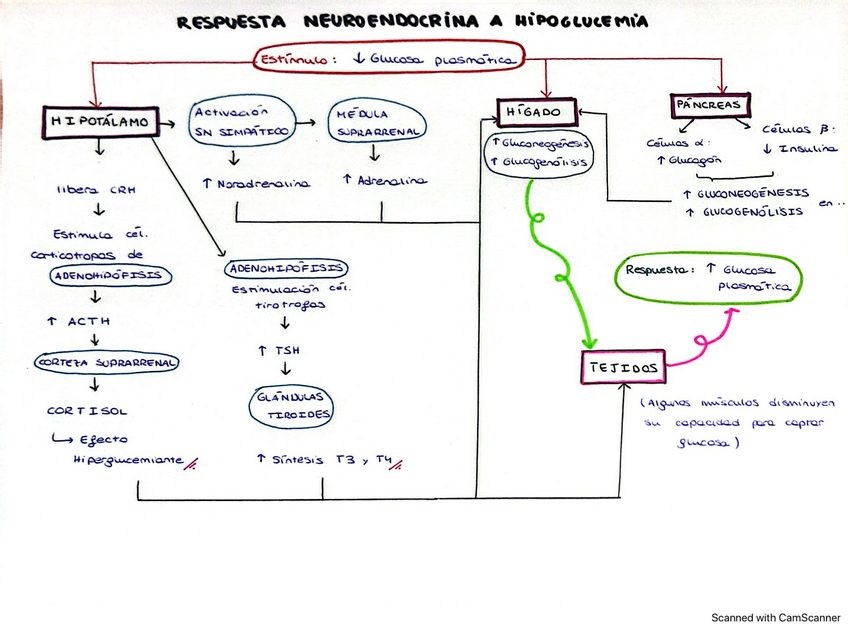 RESPUESTA NEUROENDOCRINA A HIPOGLUCEMIA
Estímulo: ↓ Glucosa plasmática
HIPOTÁLAMO
Activación
SN SIMPÁTICO
MÉDULA
SUPRARRENAL
HÍGADO
PÁNCREAS
↑ Noradrenalina
↑ Adrenalina
↑ Gluconeogénesis
↑ Glucogenólisis
Células α:
↑ Glucagón
Células β:
↓ Insulina
↑ GLUCONEOGÉNESIS
↑ GLUCOGENÓLISIS
en ..
libera CRH
Estimula cél.
corticotropas de
ADENOHIPÓFISIS
↑ ACTH
CORTEZA SUPRARRENAL
CORTISOL
↳ Efecto
Hiperglucemiante
ADENOHIPÓFISIS
Estimulación cél.
tirotrofas
↑ TSH
GLÁNDULAS
TIROIDES
↑ Síntesis T3 y T4
Respuesta: ↑ Glucosa
plasmática
TEJIDOS
(Algunos músculos disminuyen
su capacidad para captar
glucosa)
Scanned with CamScanner